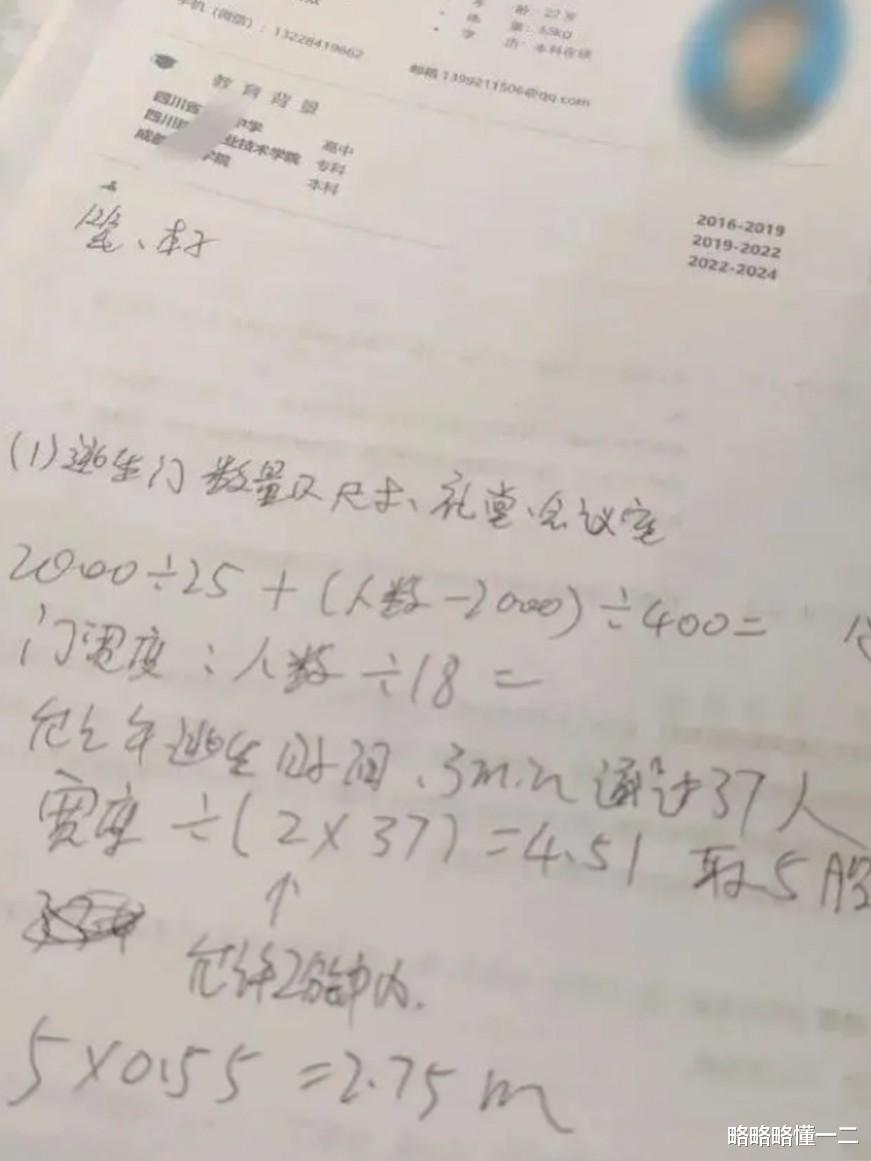 龄：27岁
手机（微信）：13228419662
量：65kg
历：本科在读
邮箱 1399211506@qq.com
教育背景
四川省 中学 高中
四川 业技术学院 专科
成都 学院 本科
2016-2019
2019-2022
2022-2024
(1)逃生门数量及尺寸、礼堂、会议室
2000÷25+(人数-2000)÷400=
门宽度：人数÷18=
允许逃生时间、3min通过37人
宽度÷(2×37)=4.51 取5股
↑
允许2分钟内.
5×0.55=2.75m
略略略懂一二